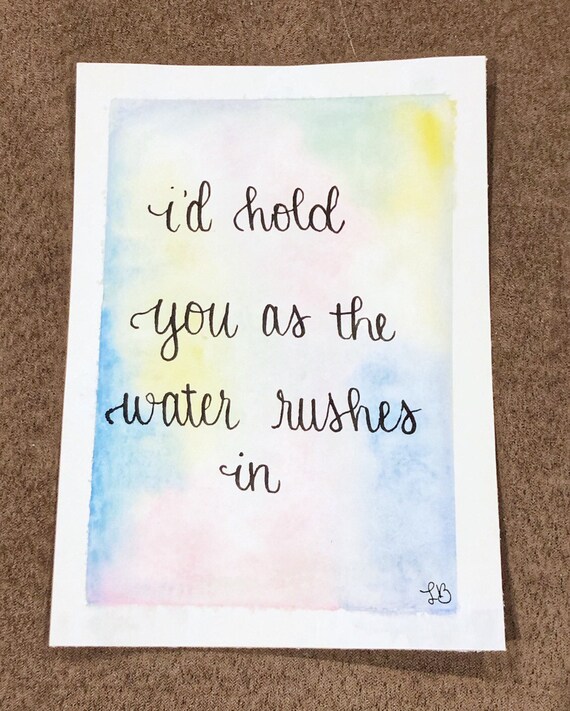 i'd hold
you as the
water rushes
in
LB